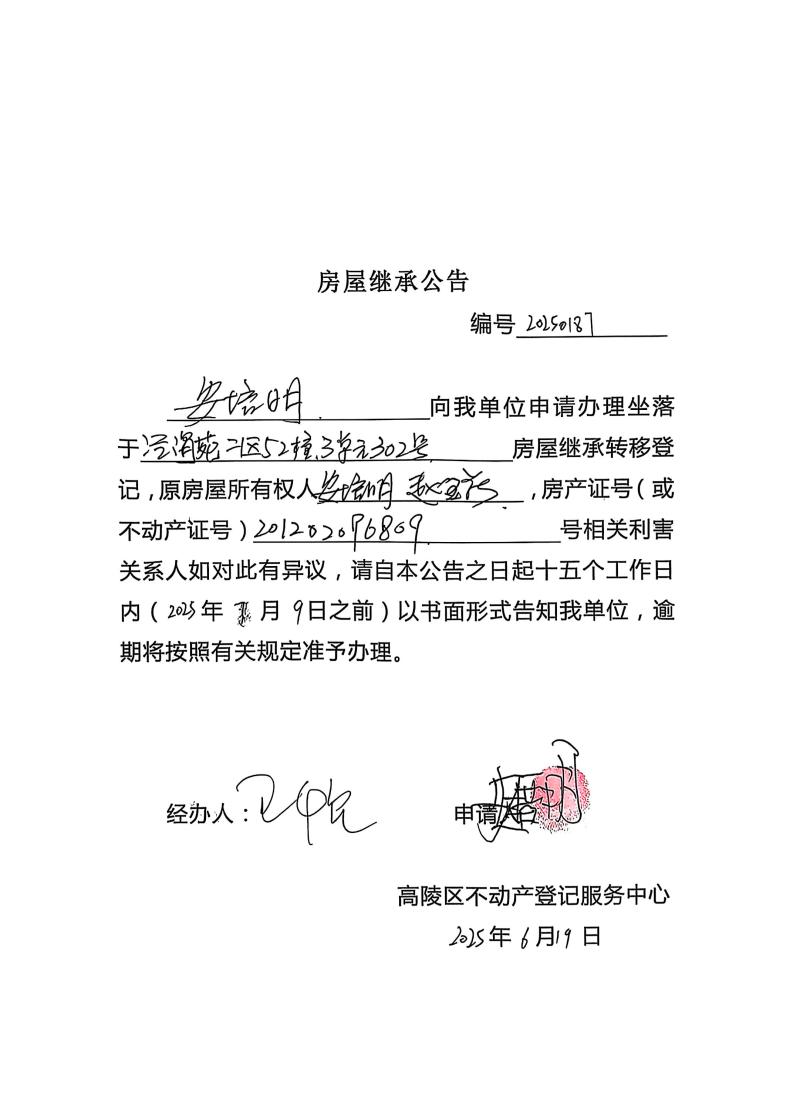 房屋继承公告
编号 20250187
安培明 向我单位申请办理坐落
于泾渭苑二区52幢3单元302号 房屋继承转移登
记，原房屋所有权人安培明 赵 ，房产证号（或
不动产证号）201202096809 号相关利害
关系人如对此有异议，请自本公告之日起十五个工作日
内（2025年 月 9日之前）以书面形式告知我单位，逾
期将按照有关规定准予办理。
经办人： 申请
高陵区不动产登记服务中心
2025年6月19日